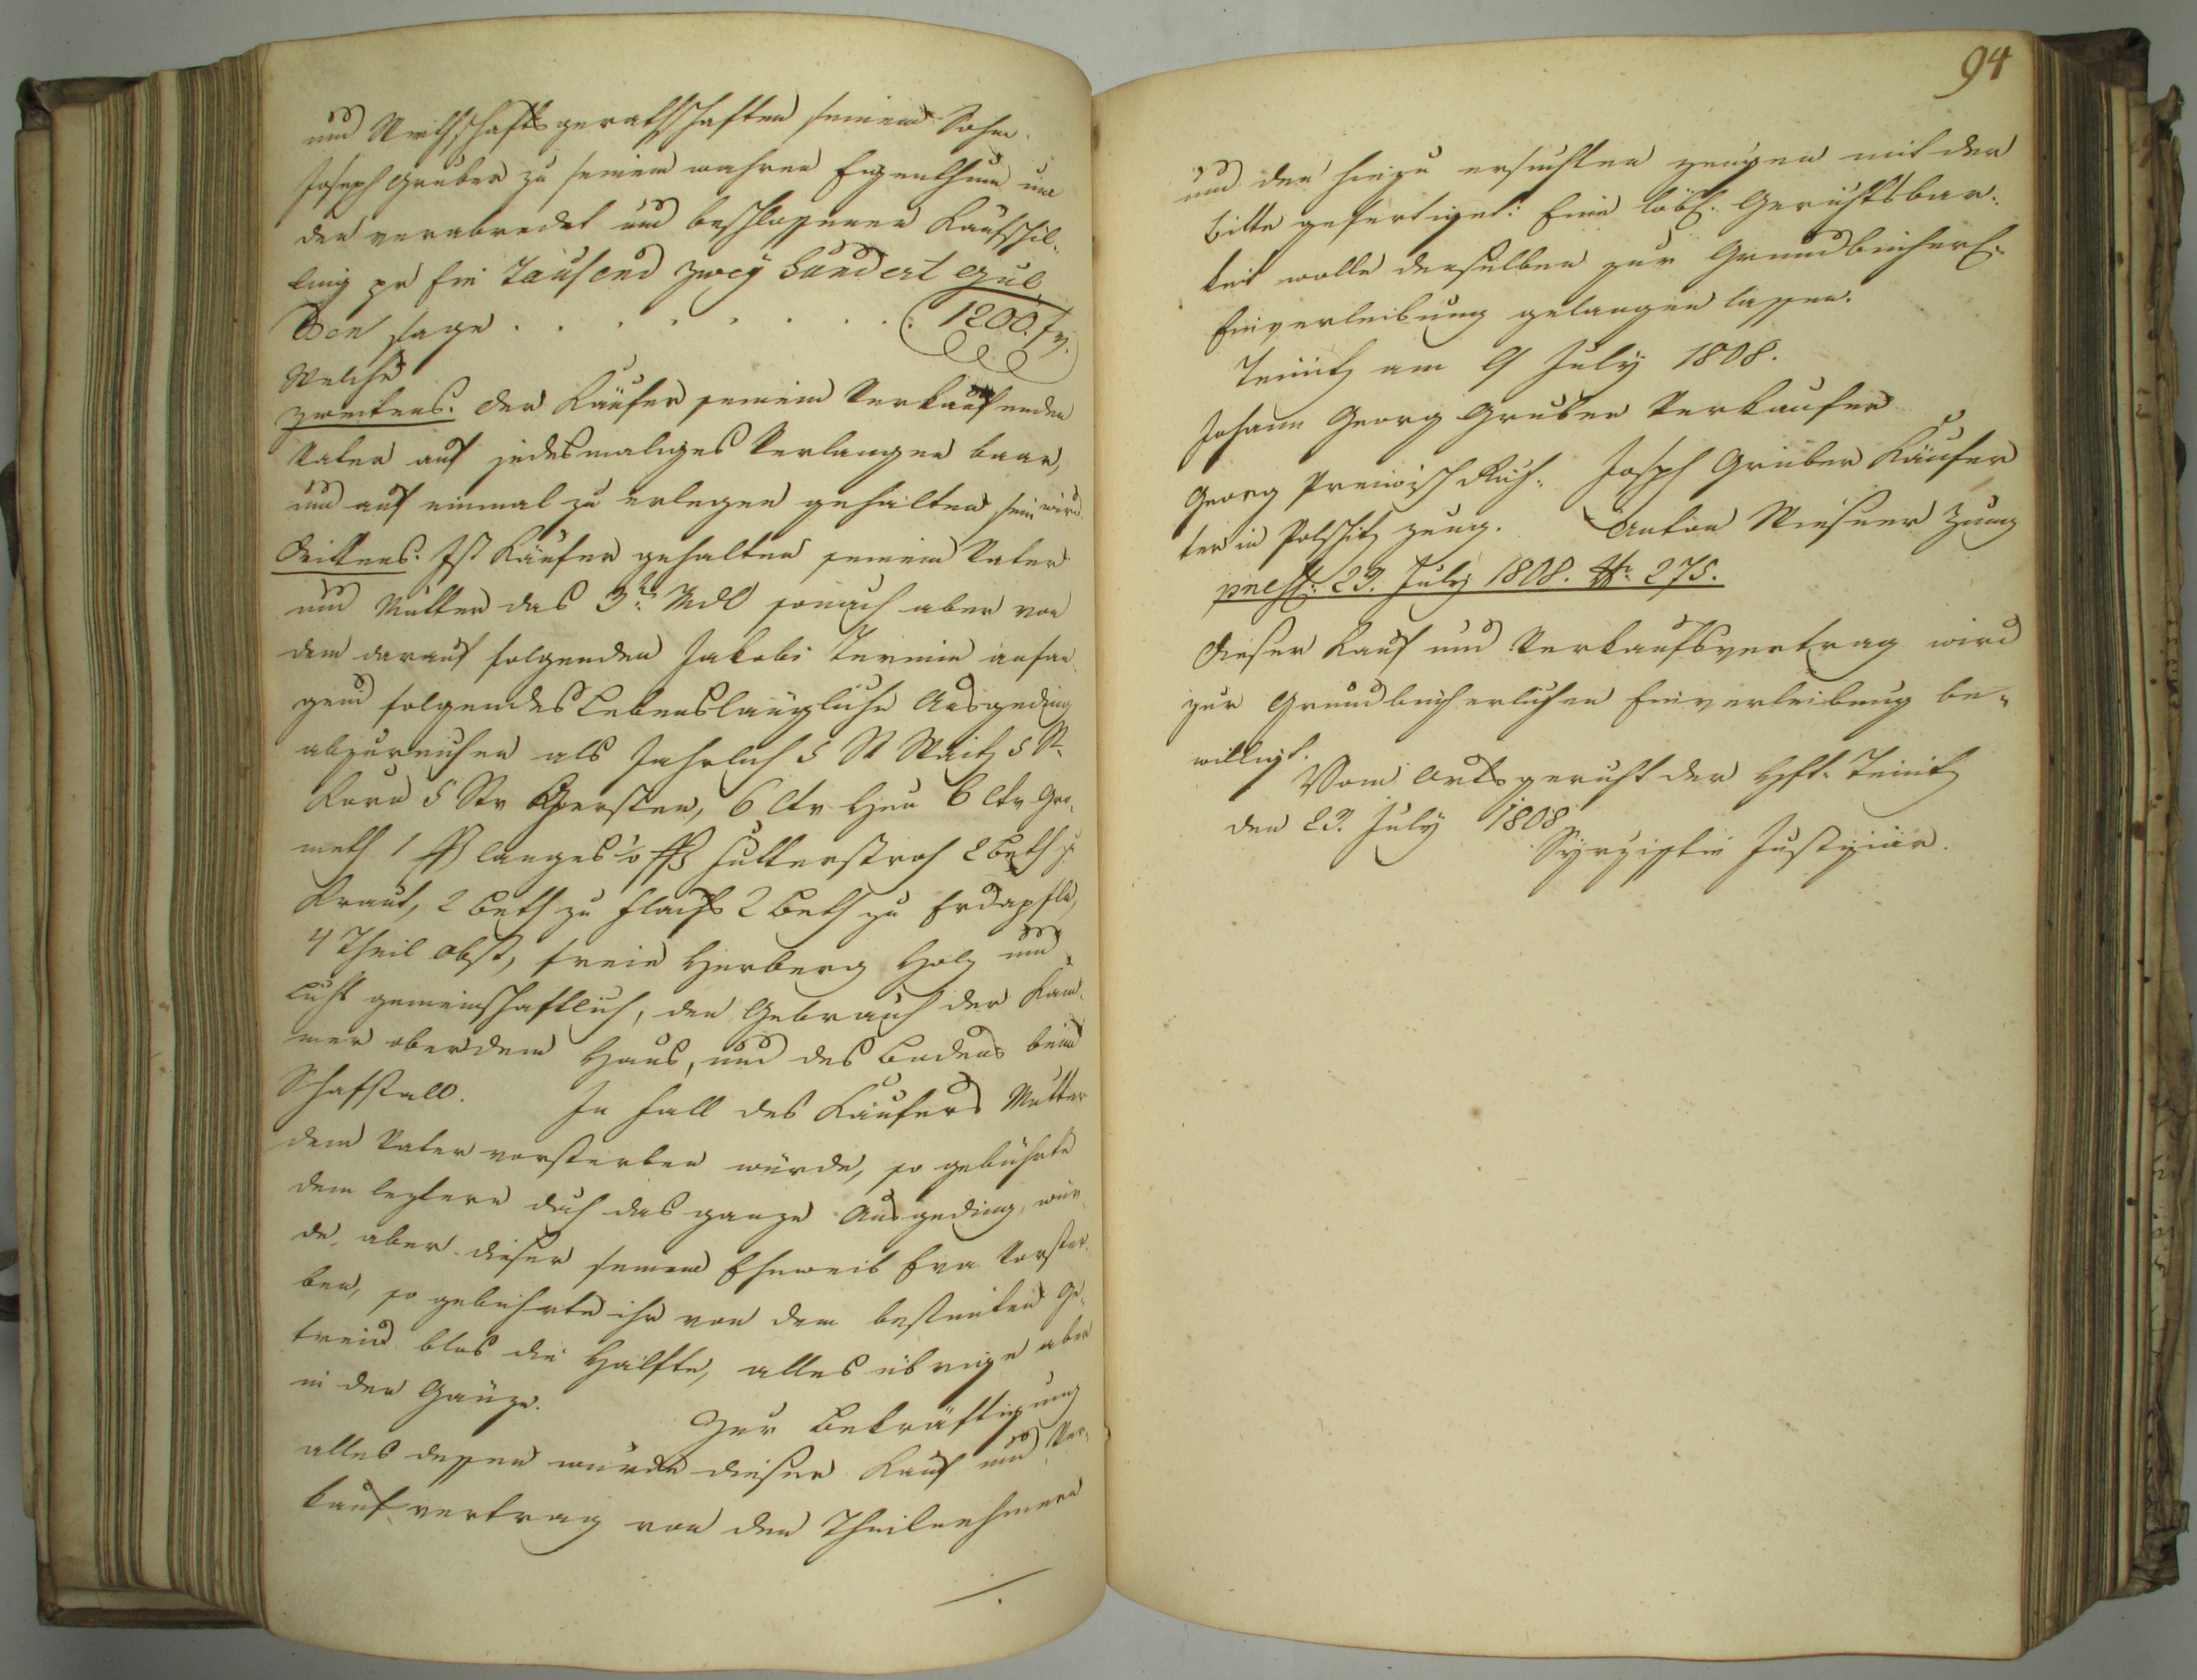 und Wirthschaftsgerathschaften seinem Sohn
Joseph Gruber zu seinem wahren Eigenthum um
den verabredet und beschlossenen Kaufschil-
ling pr Ein Tausend zwey Hundert Gul
den sage . . . . . . . . 1200 f
Welche
zweitens. Der Käufer seinem Verkaufenden
Vater auf jedesmaliges Verlangen baar,
und auf einmal zu erlegen gehalten sein wird.
Drittens. Ist Käufer gehalten seinem Vater
und Mutter das sonach aber von
dem darauf folgenden Jakobi Termin anfan-
gend folgendes Lebenslängliche Ausgeding
abzureichen als Jahrlich 5 St Waitz 5 St
Korn 5 Str Gersten, 6 Ctr Heu 6 Ctr Gro-
meth 1 langes Futterstroh 2 Beth z.
Kraut, 2 Beth zu Flachs 2 Beth zu Erdapfln,
4 Theil Obst, freie Herberg Holz und
Licht gemeinschaftlich, den Gebrauch der Kam-
mer ober dem Haus, und des Bodens beim
Schafstall. In Fall des Käufers Mutter
dem Vater vorsterben würde, so gebührte
dem leztern doch das ganze Ausgeding, wür-
de aber dieser seinem Eheweib Eva Vorster-
ben, so gebührte ihr von dem bestimten Ge-
treid blos die Hälfte, alles übrige aber
in der Gänze. Zur Bekräftigung
alles dessen wurde dieser Kauf und Ver-
kaufvertrag von den Theilnehmern
./.
94
und den hiezu ersuchten Zeugen mit der
Bitte gefertiget: Eine löbl. Gerichtsbar-
keit wolle denselben zur Grundbücherl.
Einverleibung gelangen lassen.
Teinitz am 9 July 1808.
Johann Georg Gruber Verkaufer
Georg Rich- Joseph Gruber Käufer
ter in Polschitz Zeug. Anton Wiesner Zeug
23. July 1808. Nr. 275.
Dieser Kauf und Verkaufsvertrag wird
zur Grundbücherlichen Einverleibung be-
willigt.
Vom Ortsgericht der Hft. Teinitz
den 23. July 1808
Justiziär.